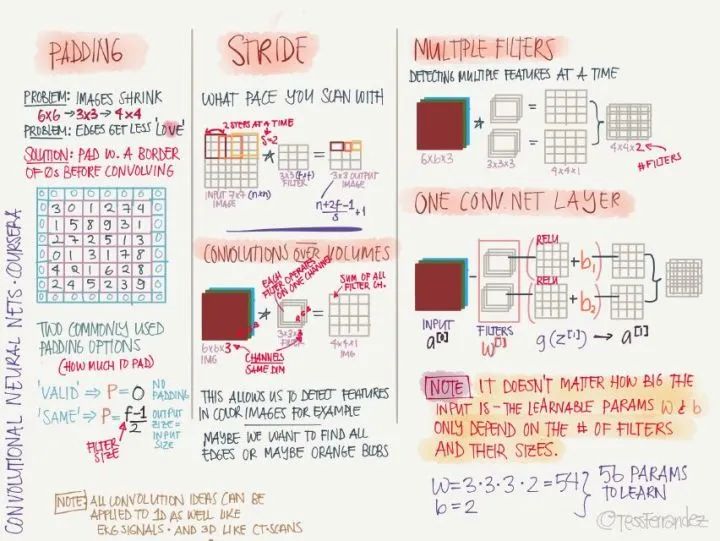 CONVOLUTIONAL NEURAL NETS · COURSERA
PADDING
PROBLEM: IMAGES SHRINK
6x6 → 3x3 → 4x4
PROBLEM: EDGES GET LESS 'LOVE'
SOLUTION: PAD W. A BORDER
OF 0s BEFORE CONVOLVING
0 0 0 0 0 0 0 0
0 3 0 1 2 7 4 0
0 1 5 8 9 3 1 0
0 2 7 2 5 1 3 0
0 0 1 3 1 7 8 0
0 4 2 1 6 2 8 0
0 2 4 5 2 3 9 0
0 0 0 0 0 0 0 0
TWO COMMONLY USED
PADDING OPTIONS
(HOW MUCH TO PAD)
'VALID' ⇒ P = 0 NO PADDING
'SAME' ⇒ P = f-1/2 OUTPUT SIZE = INPUT SIZE
FILTER
SIZE
STRIDE
WHAT PACE YOU SCAN WITH
2 STEPS AT A TIME
S=2
*
=
INPUT 7x7 (n×n)
IMAGE
3x3 (f×f)
FILTER
3x3 OUTPUT
IMAGE
n+2p-f/s +1
CONVOLUTIONS OVER VOLUMES
EACH
FILTER OPERATES
ON ONE CHANNEL
SUM OF ALL
FILTER CH.
*
=
6x6x3
IMG
3x3x3
FILTER
4x4x1
IMG
CHANNELS
SAME DIM
THIS ALLOWS US TO DETECT FEATURES
IN COLOR IMAGES FOR EXAMPLE
MAYBE WE WANT TO FIND ALL
EDGES OR MAYBE ORANGE BLOBS
MULTIPLE FILTERS
DETECTING MULTIPLE FEATURES AT A TIME
*
=
=
6x6x3
3x3x3
4x4x1
4x4x2
#FILTERS
ONE CONV.NET LAYER
RELU
( + b₁)
RELU
( + b₂)
INPUT
a[0]
FILTERS
W[1]
g(z[1]) → a[1]
NOTE IT DOESN'T MATTER HOW BIG THE
INPUT IS - THE LEARNABLE PARAMS W & b
ONLY DEPEND ON THE # OF FILTERS
AND THEIR SIZES.
W = 3·3·3·2 = 54
b = 2
56 PARAMS
TO LEARN
NOTE: ALL CONVOLUTION IDEAS CAN BE
APPLIED TO 1D AS WELL LIKE
EKG SIGNALS · AND 3D LIKE CT-SCANS
@TessFerrandez